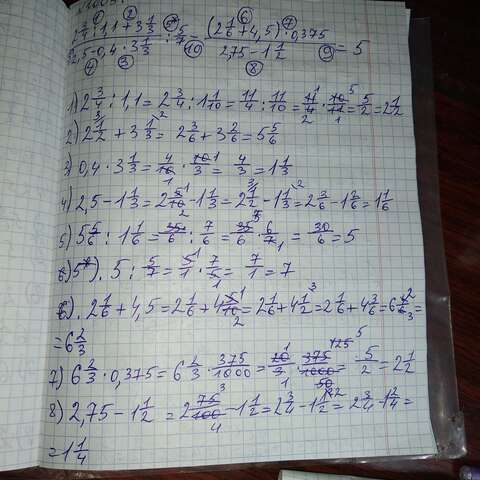 (2 3/4 : 1,1 + 3 1/3)/(2,5 - 0,4 · 3 1/3) : 5/7 - ((2 1/6 + 4,5) · 0,375)/(2,75 - 1 1/2) = 5
1) 2 3/4 : 1,1 = 2 3/4 : 1 1/10 = 11/4 : 11/10 = 11/4 · 10/11 = 5/2 = 2 1/2
2) 2 1/2 + 3 1/3 = 2 3/6 + 3 2/6 = 5 5/6
3) 0,4 · 3 1/3 = 4/10 · 10/3 = 4/3 = 1 1/3
4) 2,5 - 1 1/3 = 2 5/10 - 1 1/3 = 2 1/2 - 1 1/3 = 2 3/6 - 1 2/6 = 1 1/6
5) 5 5/6 : 1 1/6 = 35/6 : 7/6 = 35/6 · 6/7 = 30/6 = 5
5*). 5 : 5/7 = 5/1 · 7/5 = 7/1 = 7
6). 2 1/6 + 4,5 = 2 1/6 + 4 5/10 = 2 1/6 + 4 1/2 = 2 1/6 + 4 3/6 = 6 4/6 =
= 6 2/3
7) 6 2/3 · 0,375 = 6 2/3 · 375/1000 = 20/3 · 375/1000 = 5/2 = 2 1/2
8) 2,75 - 1 1/2 = 2 75/100 - 1 1/2 = 2 3/4 - 1 1/2 = 2 3/4 - 1 2/4 =
= 1 1/4